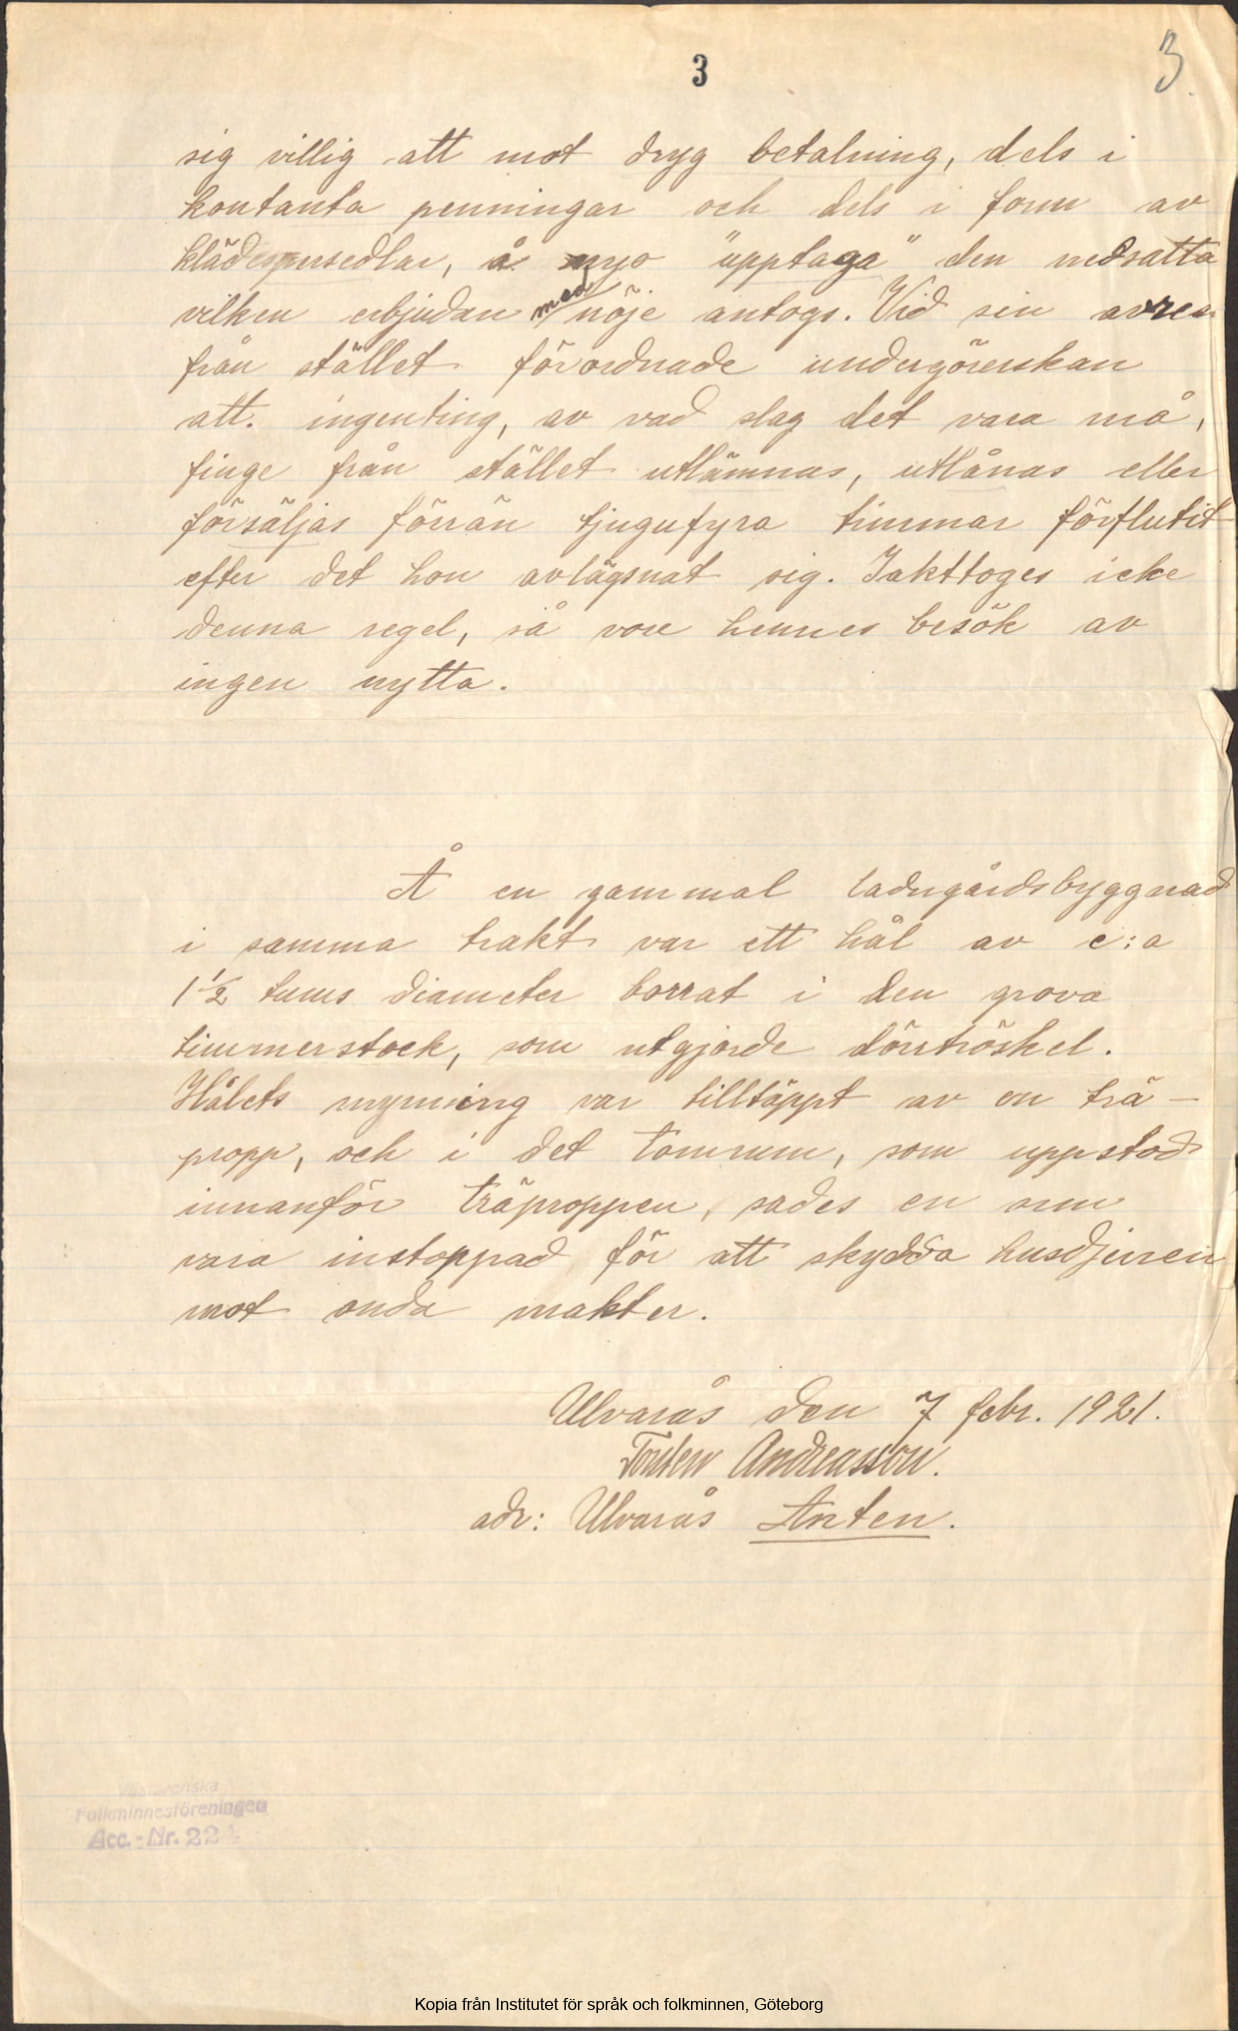 3
3.
sig villig att mot dryg betalning, dels i
kontanta penningar och dels i form av
klädespersedlar, å nyo "upptaga" den nedsatta
vilken erbjudan med nöje antogs. Vid sin avres
från stället förordnade undergörerskan
att. ingenting, av vad slag det vara må,
finge från stället utlämnas, utlånas eller
försäljas förrän tjugufyra timmar förflutit
efter det hon avlägsnat sig. Iakttoges icke
denna regel, så vore hennes besök av
ingen nytta.
Å en gammal ladugårdsbyggnad
i samma trakt var ett hål av c:a
1½ tums diameter borrat i den grova
timmerstock, som utgjorde dörrtröskel.
Hålets mynning var tilltäppt av en trä-
propp, och i det tomrum, som uppstod
innanför träproppen, sades en orm
vara instoppad för att skydda husdjuren
mot onda makter.
Ulvarås den 7 febr. 1921.
Torsten Andreasson.
adr: Ulvarås Anten.
Västsvenska
Folkminnesföreningen
Acc.-Nr. 22
Kopia från Institutet för språk och folkminnen, Göteborg